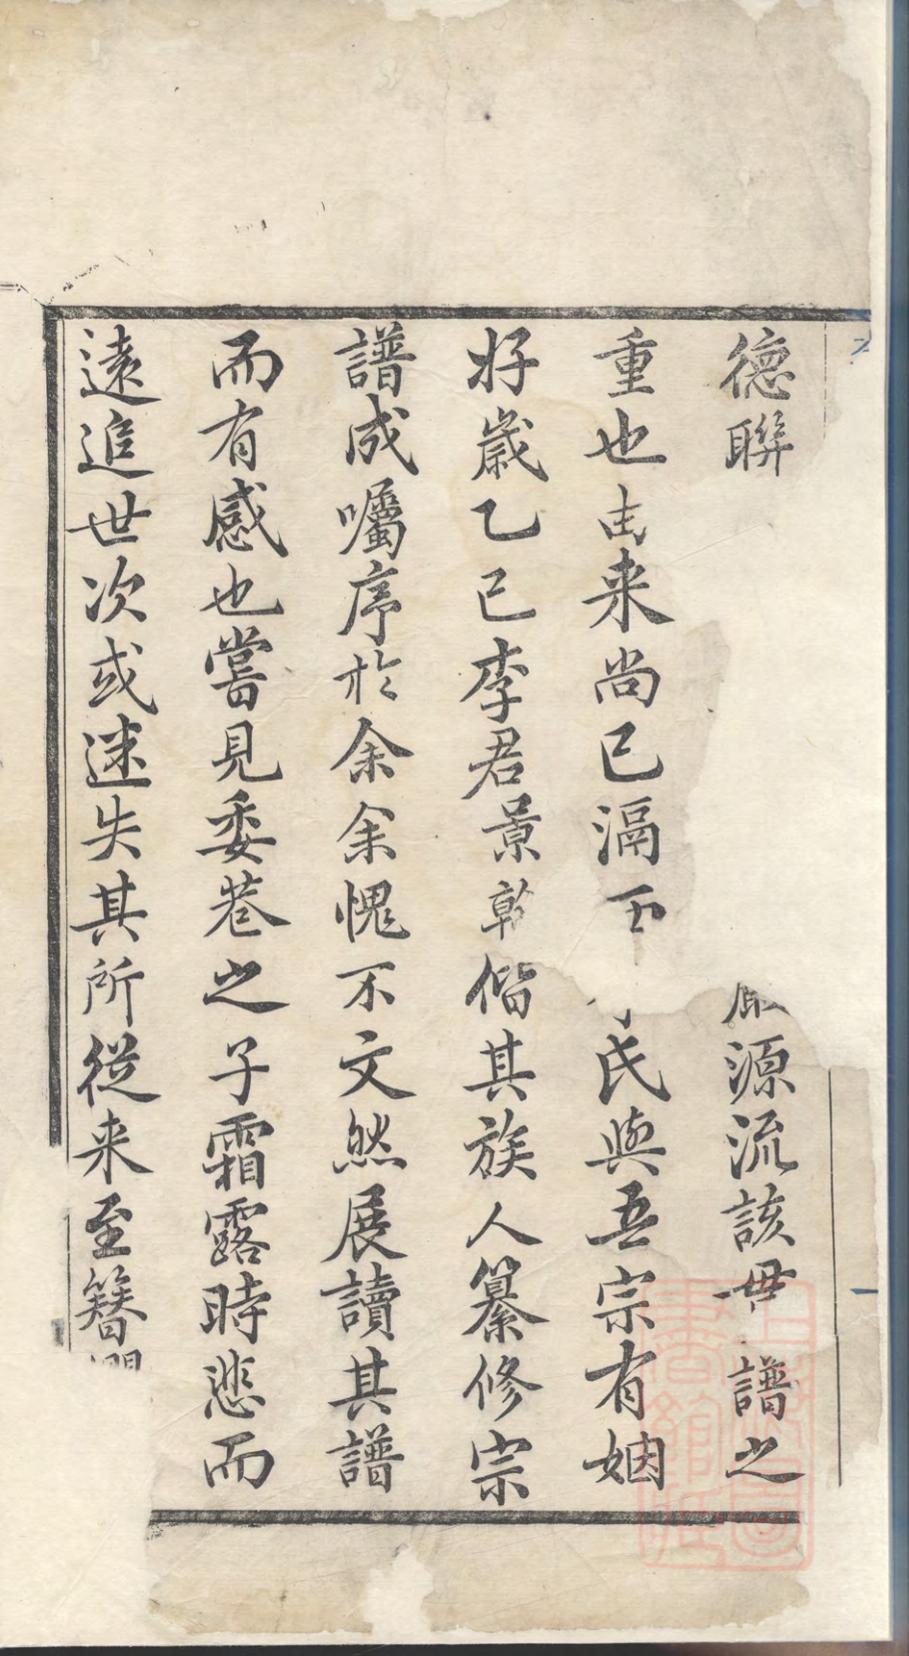 德聯源流該譜之
重也由来尚已滆氏與吾宗有姻
好歲乙巳李君景乾偕其族人纂修宗
譜成囑序於余余愧不文然展讀其譜
而有感也嘗見委巷之子霜露時悲而
遠追世次或迷失其所從来至簪
上海圖書館藏